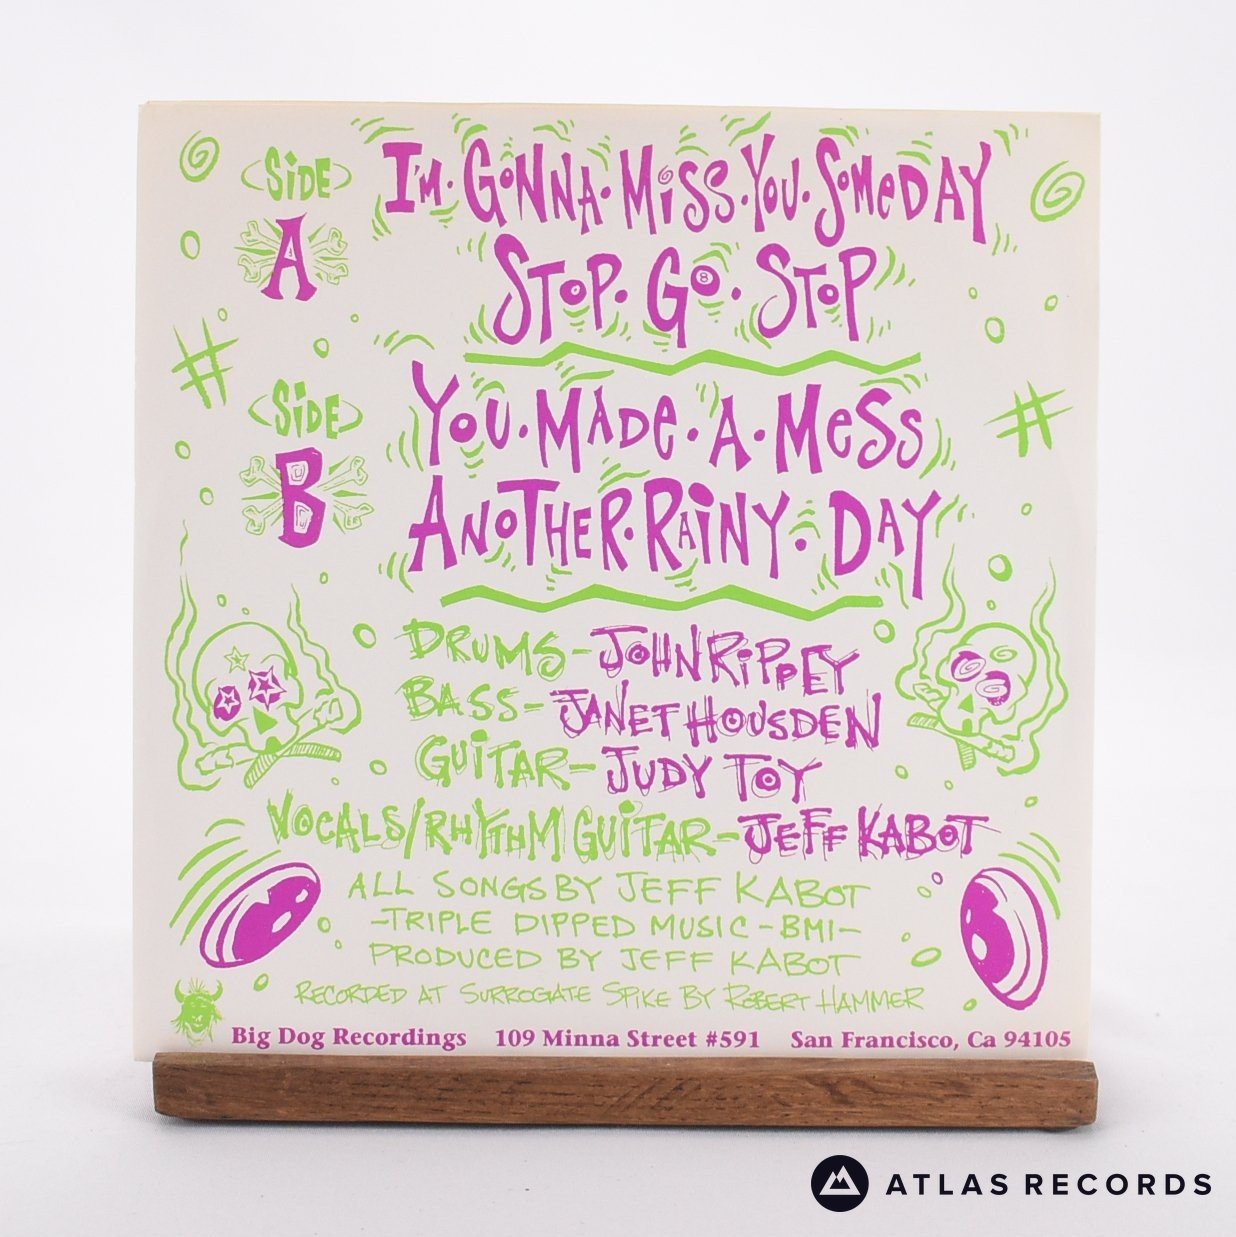 SiDE I'M·GoNNA·MiSS·YoU·SoMeDAY
A
SToP·Go·SToP
8
SiDE YoU·MADe·A·MeSS
B ANoTHER·RAiNY·DAY
DRUMS-JOHN RiPPEY
BASS-JANET HOUSDEN
GUiTAR-JUDY TOY
VOCALS/RHYTHM GUiTAR-JEFF KABOT
ALL SONGS BY JEFF KABOT
-TRIPLE DIPPED MUSIC-BMI-
PRODUCED BY JEFF KABOT
RECORDED AT SURROGATE SPIKE BY ROBERT HAMMER
Big Dog Recordings 109 Minna Street #591 San Francisco, Ca 94105
ATLAS RECORDS